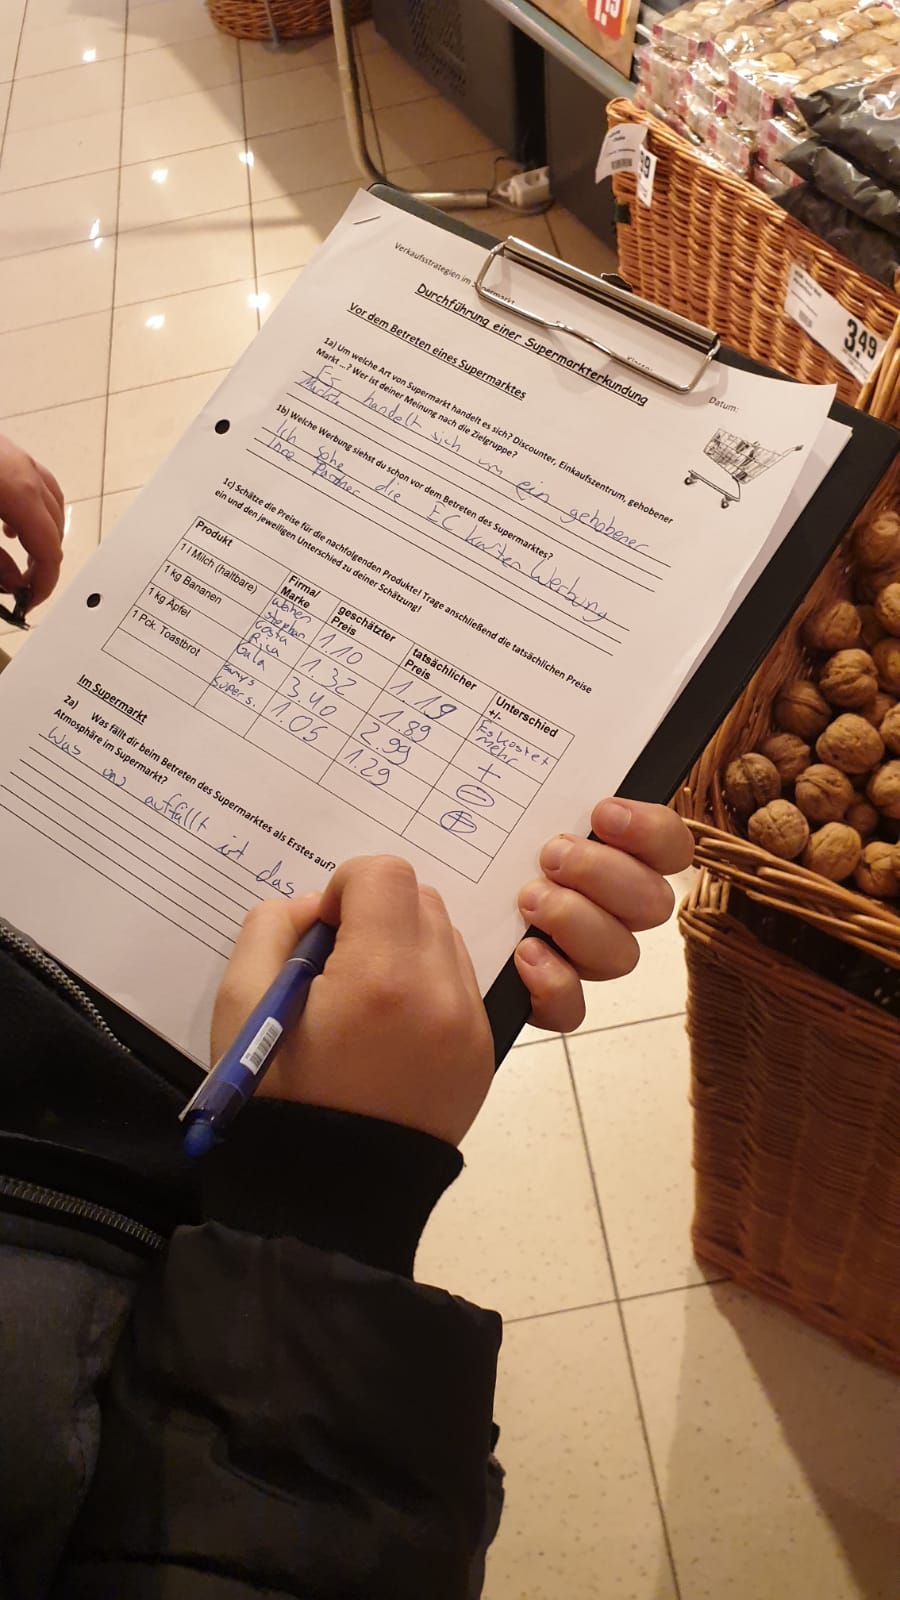 Verkaufsstrategien im Supermarkt
Durchführung einer Supermarkterkundung
Datum:
Vor dem Betreten eines Supermarktes
1a) Um welche Art von Supermarkt handelt es sich? Discounter, Einkaufszentrum, gehobener
Markt ...? Wer ist deiner Meinung nach die Zielgruppe?
Es handelt sich um ein gehobener
Markt
1b) Welche Werbung siehst du schon vor dem Betreten des Supermarktes?
Ich sehe die EC karten Werbung
Ihre Partner
1c) Schätze die Preise für die nachfolgenden Produkte! Trage anschließend die tatsächlichen Preise
ein und den jeweiligen Unterschied zu deiner Schätzung!
Produkt Firma/ Marke geschätzter Preis tatsächlicher Preis Unterschied +/-
1 l Milch (haltbare) 1.10 1.19 Es kostet mehr
1 kg Bananen 1.32 1.89 +
1 kg Äpfel Gala 3.40 2.99 -
1 Pck. Toastbrot 1.05 1.29 +
Im Supermarkt
2a) Was fällt dir beim Betreten des Supermarktes als Erstes auf?
Atmosphäre im Supermarkt?
Was uns auffällt ist das
3.49